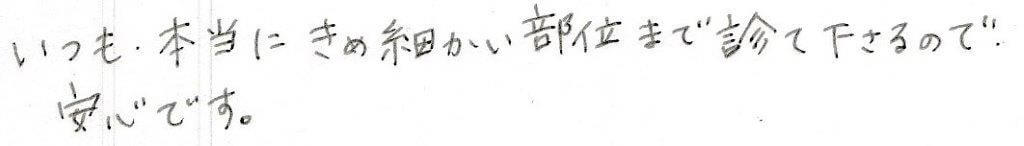 いつも、本当にきめ細かい部位まで診て下さるので、
安心です。